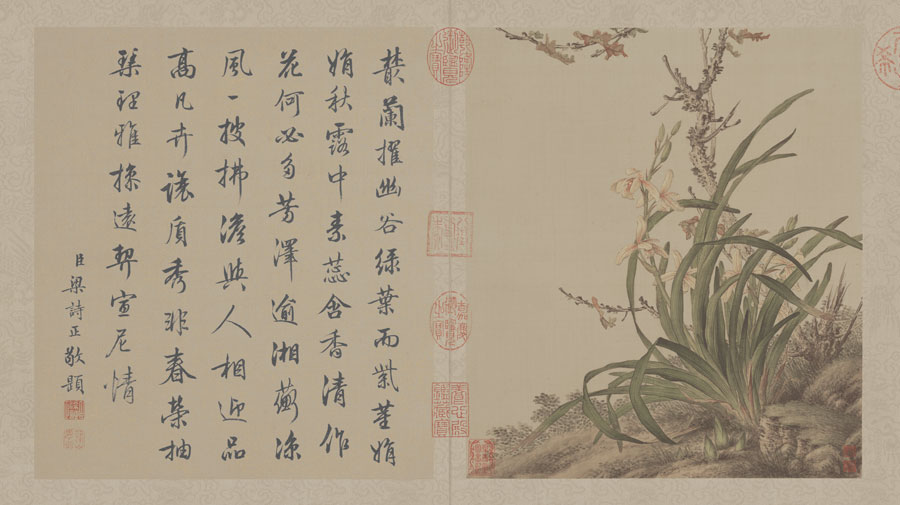 叢蘭擢幽谷綠葉而紫莖娟
娟秋露中素蕊含香清作
花何必多芳澤逾湘蘅涼
風一披拂澹與人相迎品
高凡卉讓質秀非春榮抽
琴理雅操遠契宣尼情
臣梁詩正敬題
嘉慶御覽之寶